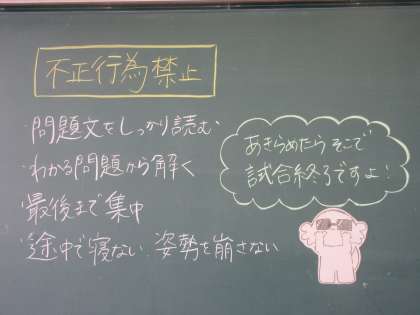 不正行為禁止
・問題文をしっかり読む
・わかる問題から解く
・最後まで集中
・途中で寝ない、姿勢を崩さない
あきらめたらそこで
試合終了ですよ!